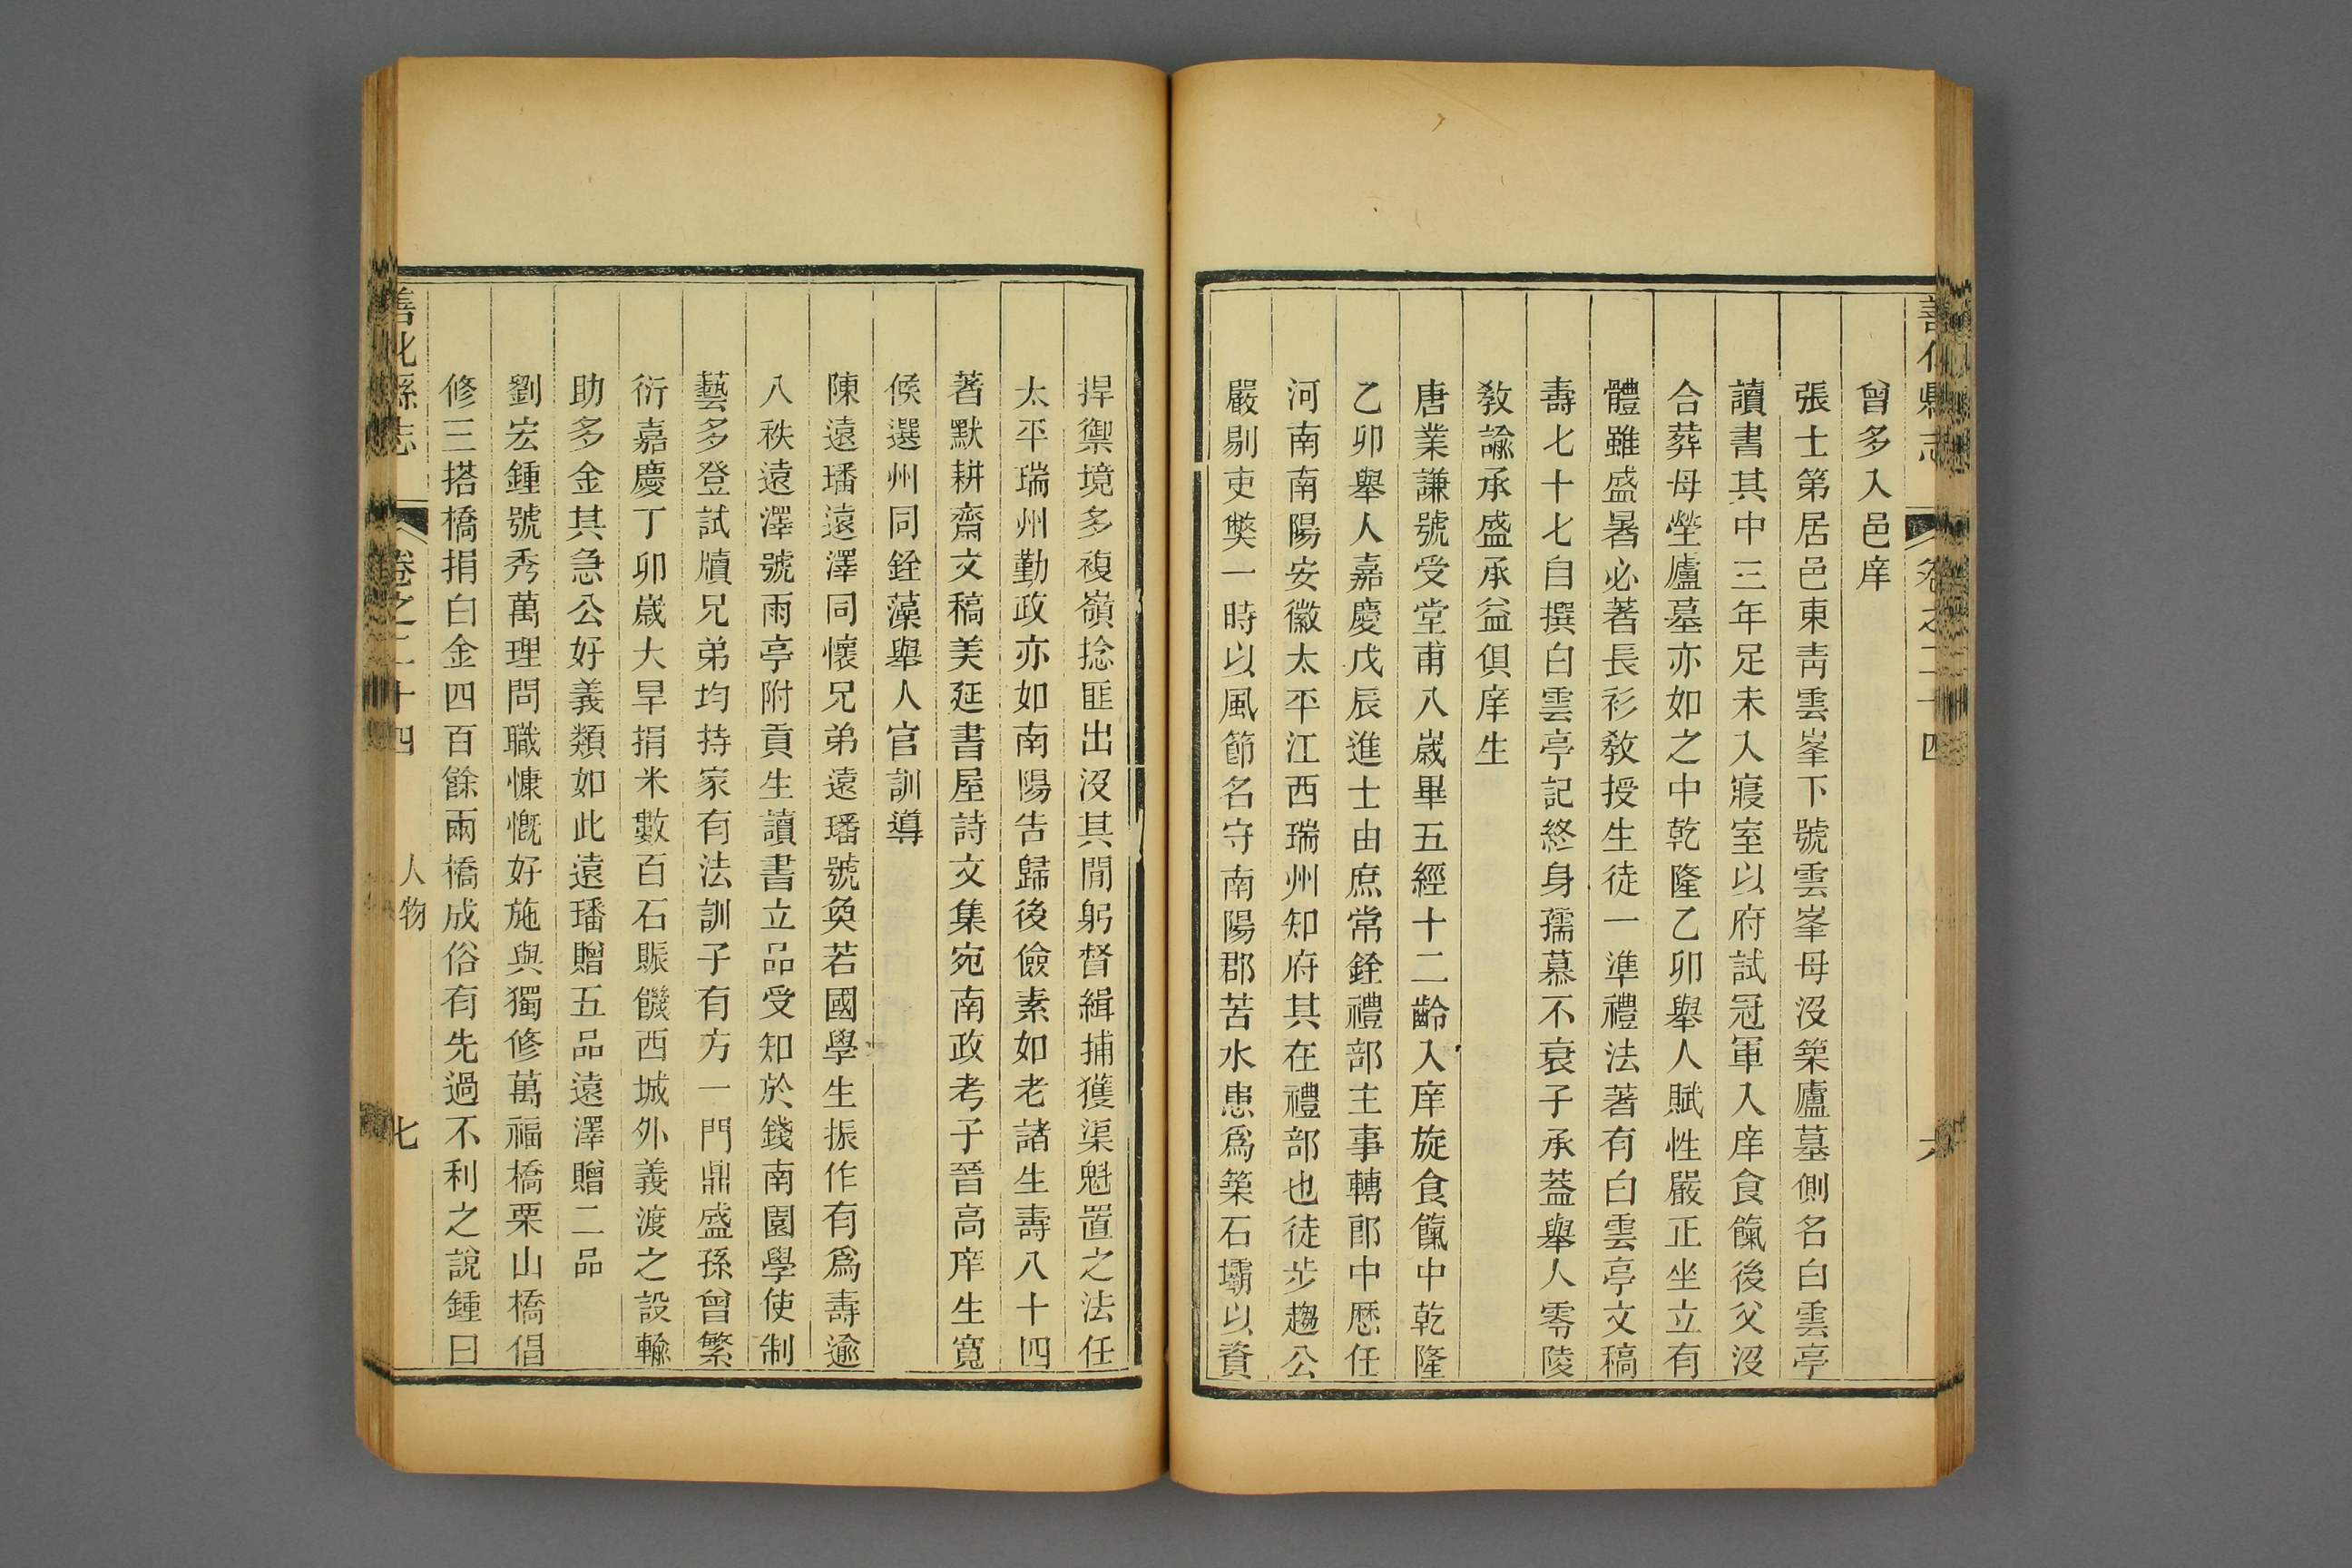 善化縣志
卷之二十四
六
曾多入邑庠
張士第居邑東靑雲峯下號雲峯母沒築廬墓側名白雲亭
讀書其中三年足未入寢室以府試冠軍入庠食餼後父沒
合葬母塋廬墓亦如之中乾隆乙卯舉人賦性嚴正坐立有
體雖盛暑必著長衫敎授生徒一準禮法著有白雲亭文稿
壽七十七自撰白雲亭記終身孺慕不衰子承蓋舉人零陵
敎諭承盛承益俱庠生
唐業謙號受堂甫八歲畢五經十二齡入庠旋食餼中乾隆
乙卯舉人嘉慶戊辰進士由庶常銓禮部主事轉郎中歷任
河南南陽安徽太平江西瑞州知府其在禮部也徒步趨公
嚴剔吏獘一時以風節名守南陽郡苦水患爲築石壩以資
捍禦境多複嶺捻匪出沒其閒躬督緝捕獲渠魁置之法任
太平瑞州勤政亦如南陽吿歸後儉素如老諸生壽八十四
著默耕齋文稿美延書屋詩文集宛南政考子晉高庠生寬
候選州同銓藻舉人官訓導
陳遠璠遠澤同懷兄弟遠璠號奐若國學生振作有爲壽逾
八秩遠澤號雨亭附貢生讀書立品受知於錢南園學使制
藝多登試牘兄弟均持家有法訓子有方一門鼎盛孫曾繁
衍嘉慶丁卯歲大旱捐米數百石賑饑西城外義渡之設輸
助多金其急公好義類如此遠璠贈五品遠澤贈二品
劉宏鍾號秀萬理問職慷慨好施與獨修萬福橋栗山橋倡
修三搭橋捐白金四百餘兩橋成俗有先過不利之說鍾曰
善化縣志
卷之二十四
人物
七